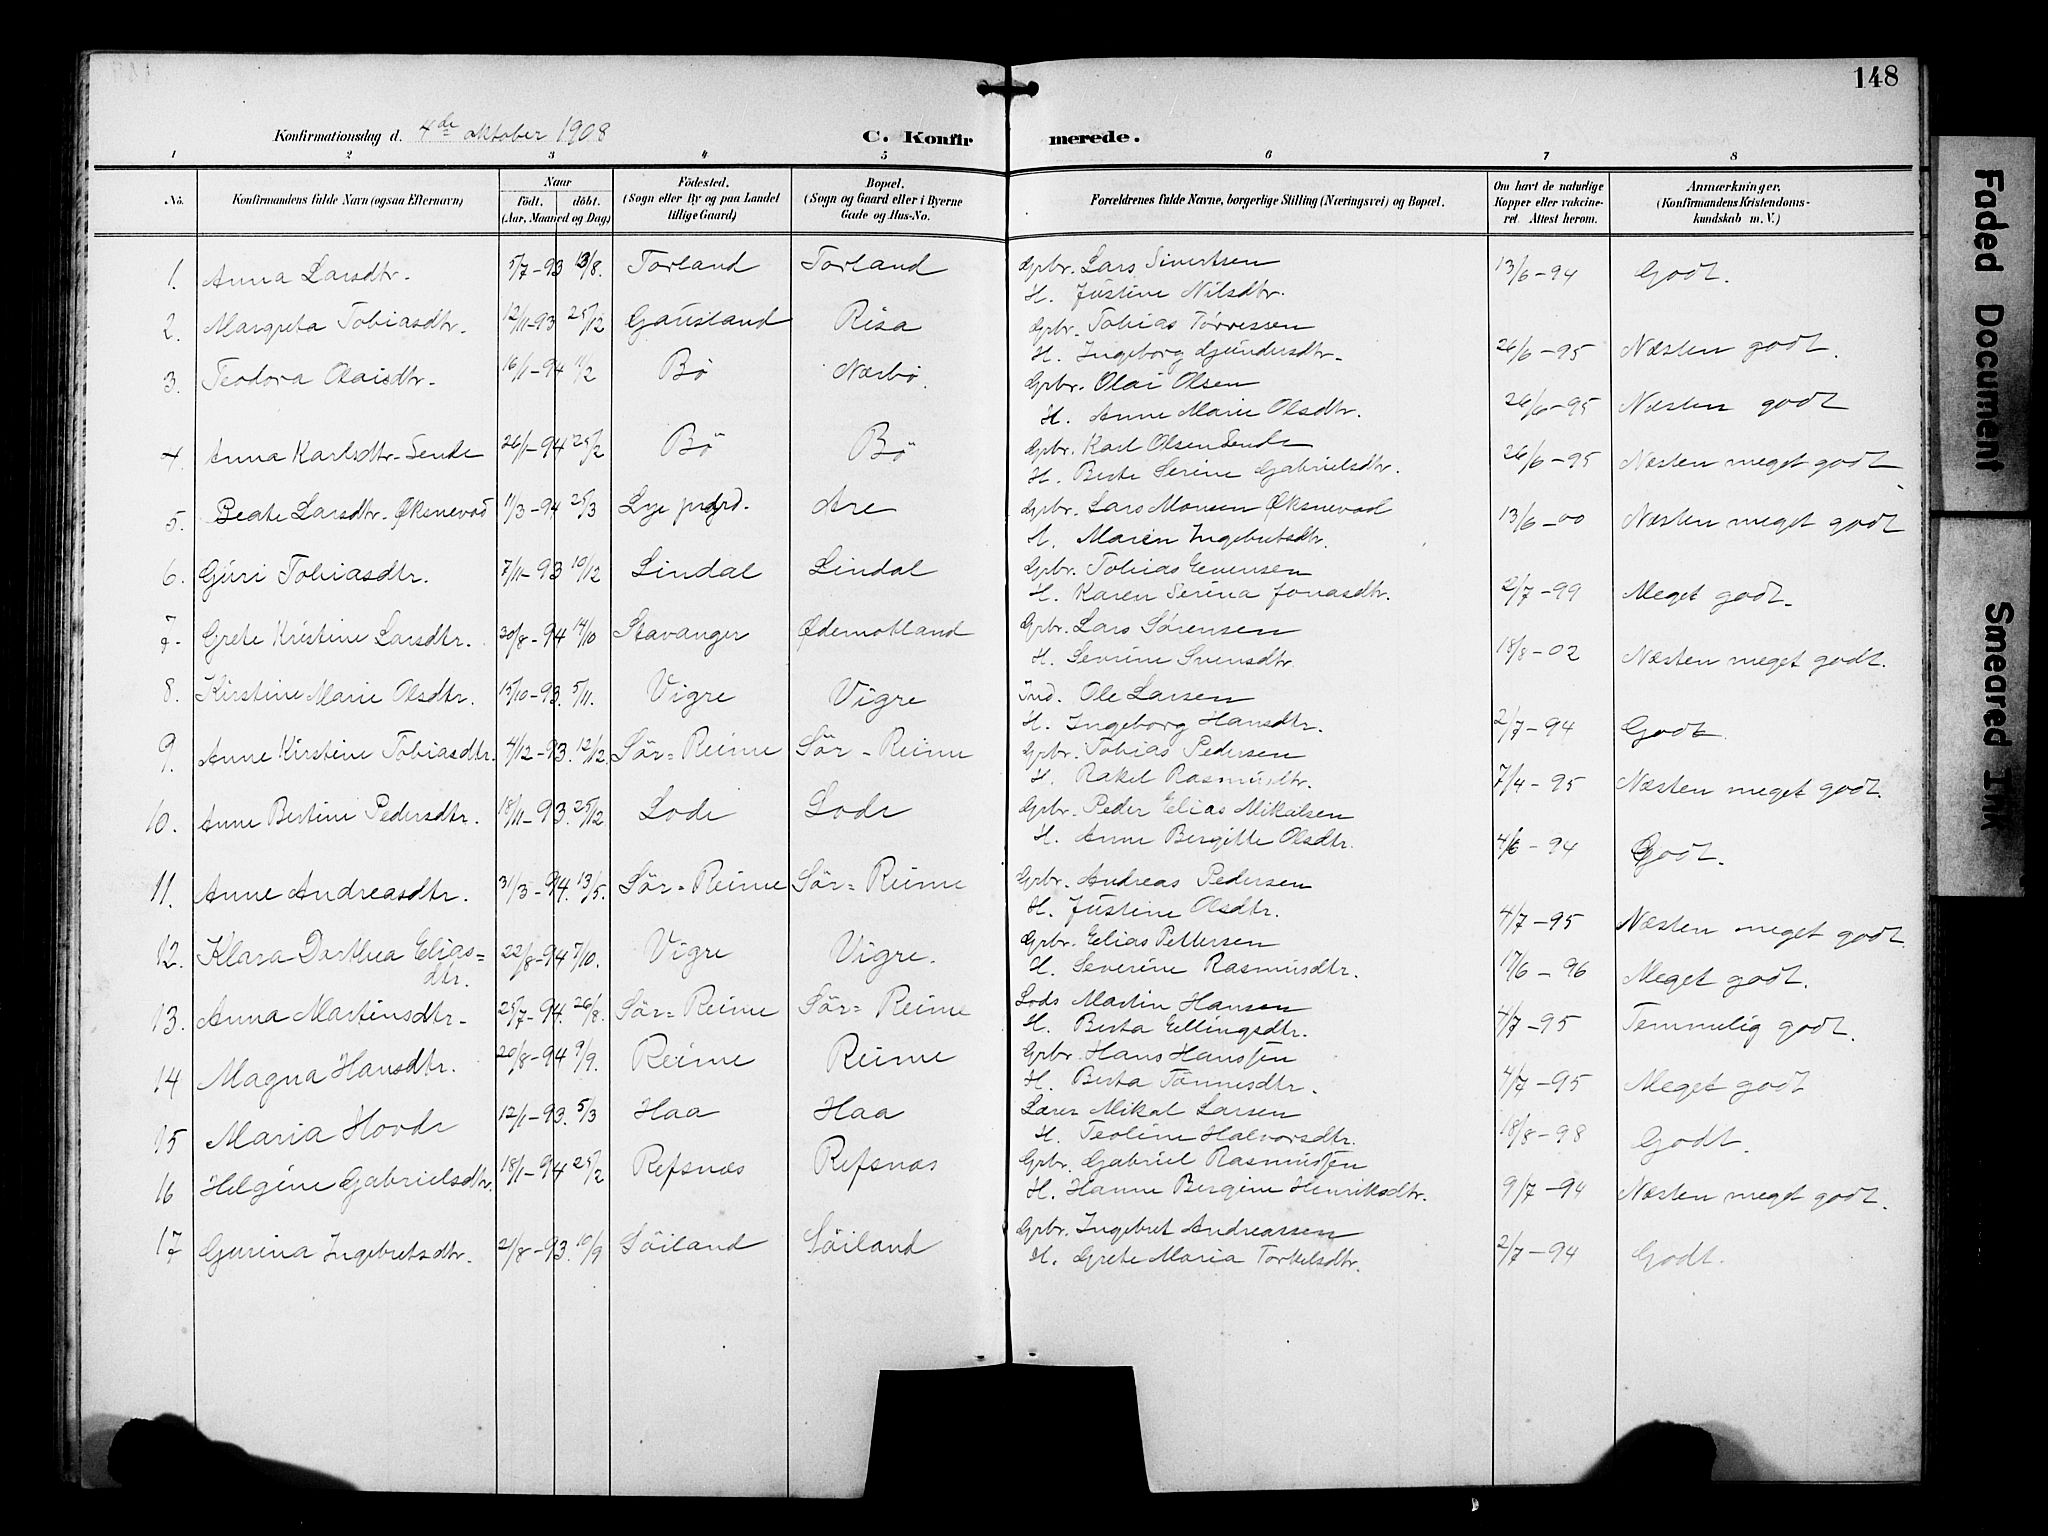 148
Konfirmationsdag d. 4de oktober 1908 C. Konfirmerede.
1 2 3 4 5 6 7 8
No. Konfirmandens fulde Navn (ogsaa Efternavn) Naar födt. döbt. (Aar, Maaned og Dag) Födested. (Sogn eller By og paa Landet tillige Gaard) Bopæl. (Sogn og Gaard eller i Byerne Gade og Hus-No. Forældrenes fulde Navne, borgerlige Stilling (Næringsvei) og Bopæl. Om havt de naturlige Kopper eller vakcineret. Attest herom. Anmærkninger. (Konfirmandens Kristendomskundskab m. V.)
1. Anna Larsdtr. 5/7-93 13/8. Torland Torland Grbr. Lars Sivertsen 13/6-94 Godt.
H. Justine Nilsdtr.
2. Margreta Tobiasdtr. 12/11-93 25/12 Gausland Risa Grbr. Tobias Törressen
H. Ingeborg Gundersdtr. 26/6-95 Næsten godt.
3. Teodora Olaisdtr. 16/1-94 11/2 Bö Nærbö. Grbr. Olai Olsen
H. Anne Marie Olsdtr. 26/6-95 Næsten godt
4. Anna Karlsdtr-Sende 26/1-94 25/2 Bö Bö Grbr. Karl Olsen Sende
H. Berte Serine Gabrielsdtr. 26/6-95 Næsten meget godt
5. Beate Larsdtr. Øksnevad 11/3-94 25/3 Lye prgrd. Are Grbr. Lars Monsen Øksnevad 13/6-00 Næsten meget godt
H. Maren Ingebretsdtr.
6. Guri Tobiasdtr. 7/11-93 10/12 Lindal Lindal Grbr. Tobias Evensen
H. Karen Serina Jonasdtr. 2/7-99 Meget godt.
7. Grete Kristine Larsdtr. 30/8-94 14/10 Stavanger Ødemotland Grbr. Lars Sørensen
H. Severine Svensdtr. 18/8-02 Næsten meget godt.
8. Kirstine Marie Olsdtr. 15/10-93. 5/11. Vigre Vigre Ind. Ole Larsen
H. Ingeborg Hansdtr. 2/7-94 Godt
9. Anne Kirstine Tobiasdtr. 4/12-93. 12/12. Sör=Reime Sör-Reime Grbr. Tobias Pedersen
H. Rakel Rasmusdtr. 7/4-95 Næsten meget godt.
10. Anne Bertine Pedersdtr. 18/11-93. 25/12 Lode Lode Grbr. Peder Elias Mikalsen
H. Anne Bergitte Olsdtr. 4/6-94 Godt.
11. Anne Andreasdtr. 31/3-94. 13/5. Sör=Reime Sör=Reime Grbr. Andreas Pedersen
H. Justine Olsdtr. 4/7-95 Næsten meget godt
12. Klara Dorthea Elias= 22/8-94 7/10. Vigre Vigre. Grbr. Elias Pettersen
dtr. H. Severine Rasmusdtr. 17/6-96 Meget godt.
13. Anna Martinsdtr. 25/7-94. 26/8. Sör=Reime Sör=Reime Lods Martin Hansen
H. Berta Ellingsdtr. 4/7-95 Temmelig godt.
14 Magna Hansdtr. 20/8-94 9/9. Reime Reime Grbr. Hans Hanssen
H. Berta Tönnesdtr. 4/7-95 Meget godt
15 Maria Hovde 12/1-93. 5/3 Haa Haa Lærer Mikal Larsen
H. Teoline Halvorsdtr. 18/8-98 Godt.
16 Helgine Gabrielsdtr. 18/1-94 25/2 Refsnæs Refsnæs Grbr. Gabriel Rasmussen
H. Hanne Bergine Henriksdtr. 9/7-94 Næsten meget godt.
17 Gurina Ingebretsdtr. 21/8-93. 10/9 Söiland Söiland Grbr. Ingebret Andreassen
H. Grete Maria Torkelsdtr. 2/7-94 Godt.
Faded Document
Smeared Ink